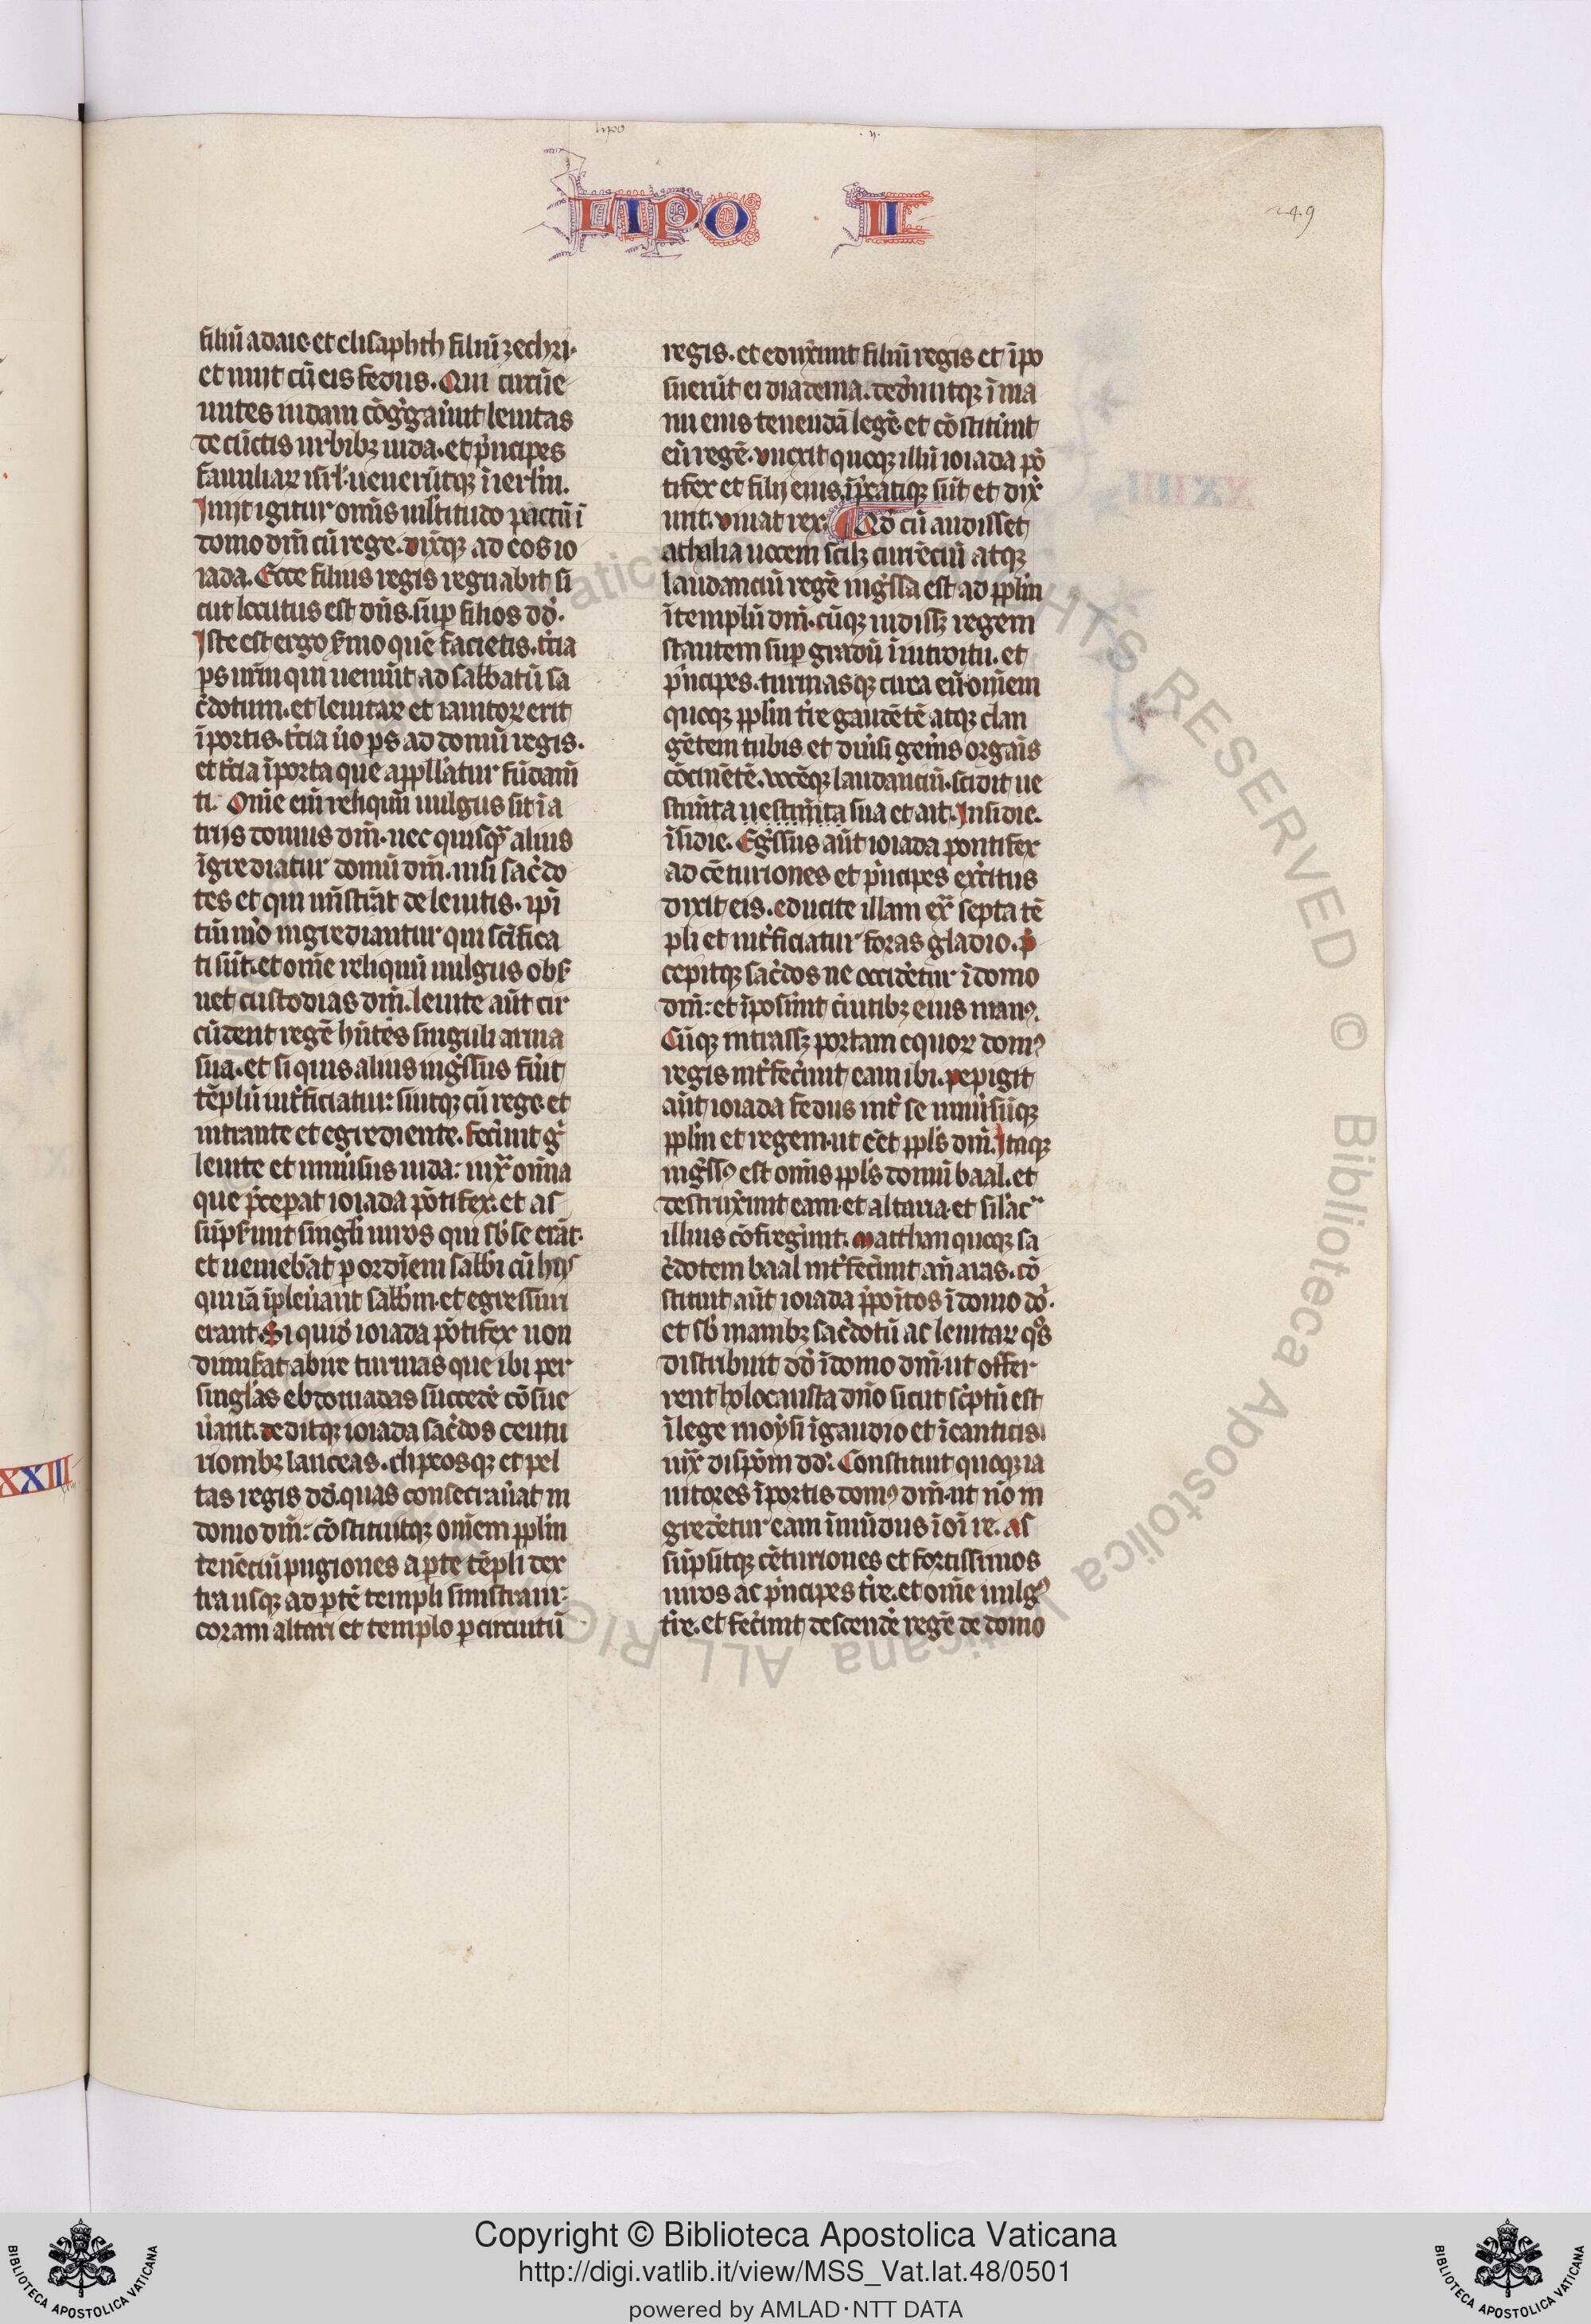 lipo .ii.
LIPO II
249
filiū adaie et elisaphth filiū zechri.
et iniit cū eis fedus. Qui circūe
untes iudam cōg̃gaũnt leuitas
de cūctis urbibꝫ iuda. et p̃ncipes
familiaꝝ isrl̃. uenerūtqꝫ ī ierlm̃.
Iniit igitur om̃is ml̃titudo pactū ī
domo dñi cū rege. dixitqꝫ ad eos io
iada. Ecce filius regis regnabit si
cut locutus est dñs. suꝑ filios dd̃.
Iste est ergo s̃mo quē facietis. t̃cia
ps ur̃m qui ueniūt ad sabbatū sa
c̃dotum. et leuitaꝝ et ianitoꝝ erit
ī portis. t̃cia ũo ps ad domū regis.
et t̃cia ī porta que appll̃atur fūdam̃
ti. Om̃e eni reliquū uulgus sit ī a
trijs domus dñi. nec quisqᷓ alius
īgrediatur domū dñi. nisi sac̃do
tes et qui mĩstrāt de leuitis. ip̃i
tm̃mo ingrediantur qui sc̃ifica
ti sūt. et om̃e reliquū uulgus obs̃
uet custodias dñi. leuite aūt cir
cūdent regē hñtes singuli arma
sua. et si quis alius ing̃ssus fũit
tēplū int̃ficiatur: sintqꝫ cū rege. et
intrante et egrediente. Fec̃unt g̃
leuite et uniũsus iuda: iuxᷓ om̃ia
que p̃ceꝑat ioiada pōtifex. et as
sūps̃unt singl̃i uiros qui sb̃ se erāt.
et ueniebāt ꝑ ordinem sabbi cū hijs
qui iā īpleũant sabbm̃. et egressuri
erant. Si quid̃ ioiada pōtifex non
dimis̃at abire turmas que ibi per
singl̃as ebdomadas succed̃e cōsue
ũant. deditqꝫ ioiada sac̃dos centu
rionibꝫ lanceas. clipeosqꝫ et pel
tas regis dd̃. quas consecraũat in
domo dñi: cōstituitqꝫ om̃em ppl̃m
tenēciū pugiones a ꝑte tēpli dex
tra usqꝫ ad ꝑtē templi sinistram:
coram altari et templo ꝑ circuitū
regis. et eduxunt filiū regis et īpo
suerūt ei diadema. ded̃untqꝫ ī ma
nu eius tenendā legē. et cōstitũnt
eū regē. vnxit quoqꝫ illū ioiada pō
tifex et filij eius. īp̃catiqꝫ sūt et dix̃
unt. viuat rex. Qd̃ cū audisset
athalia uocem scilꝫ currēciū atqꝫ
laudanciū regē ing̃ssa est ad ppl̃m
ī templū dñi. cūqꝫ uidissꝫ regem
stantem suꝑ gradū ī introitu. et
p̃ncipes. turmasqꝫ circa eū. om̃em
quoqꝫ ppl̃m t̃re gaudētē atqꝫ clan
gētem tubis et diũsi gen̄is orgais
cōcinētē. uocēqꝫ laudanciū. scidit ue
stim̃ta uestim̃ta sua et ait. Insidie.
īsidie. Eg̃ssus aūt ioiada pontifex
ad cēturiones et p̃ncipes exc̃itus
dixit eis. educite illam exᷓ septa tē
pli et int̃ficiatur foras gladio. p̃
cepitqꝫ sac̃dos ne occid̃etur ī domo
dñi: et īposũnt c̃uicibꝫ eius manꝰ.
Cūqꝫ intrassꝫ portam equoꝝ domꝰ
regis int̃fec̃unt eam ibi. pepigit
aūt ioiada fedus int̃ se uniũsūqꝫ
ppl̃m et regem. ut eēt ppl̃s dñi. Itaqꝫ
ing̃ssꝰ est om̃is ppl̃s domū baal. et
destruxũnt eam. et altaria et sil̃acᷓ
illius cōfreg̃unt. Matthan quoqꝫ sa
c̃dotem baal int̃fec̃unt añ aras. cō
stituit aūt ioiada p̃poĩtos ī domo dõ.
et sb̃ manibꝫ sac̃dotū ac leuitaꝝ qᵒs
distribuit dd̃ ī domo dñi. ut offer
rent holocausta dño sicut sc̃ptū est
ī lege moysi ī gaudio et ī canticis.
iuxᷓ disp̃om̃ dd̃. Constituit quoqꝫ ia
nitores ī portis domꝰ dñi. ut nō in
gred̃etur eam īmūdus ī oī re. as
sūpsitqꝫ cēturiones et fortissimos
uiros ac p̃ncipes t̃re. et om̃e uulgꝰ
t̃re. et fec̃unt descend̃e regē de domo
XXIII
Copyright © Biblioteca Apostolica Vaticana
http://digi.vatlib.it/view/MSS_Vat.lat.48/0501
powered by AMLAD·NTT DATA
BIBLIOTECA APOSTOLICA VATICANA
BIBLIOTECA APOSTOLICA VATICANA